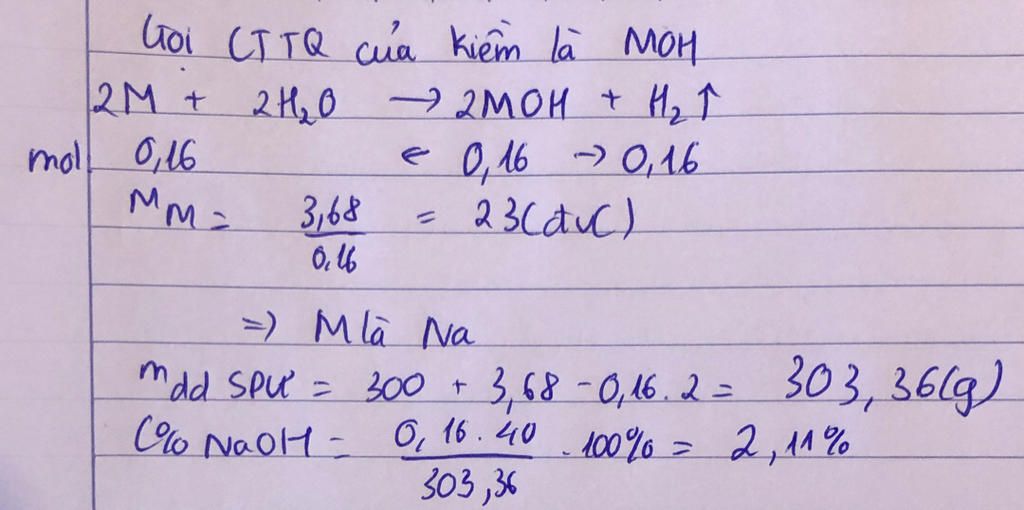 Gọi CTTQ của kiềm là MOH
2M + 2H₂O → 2MOH + H₂↑
mol 0,16 ← 0,16 → 0,16
M_M = 3,68/0,16 = 23(đvC)
=> M là Na
m dd SPƯ = 300 + 3,68 - 0,16.2 = 303,36(g)
C% NaOH = 0,16.40/303,36 . 100% = 2,11%